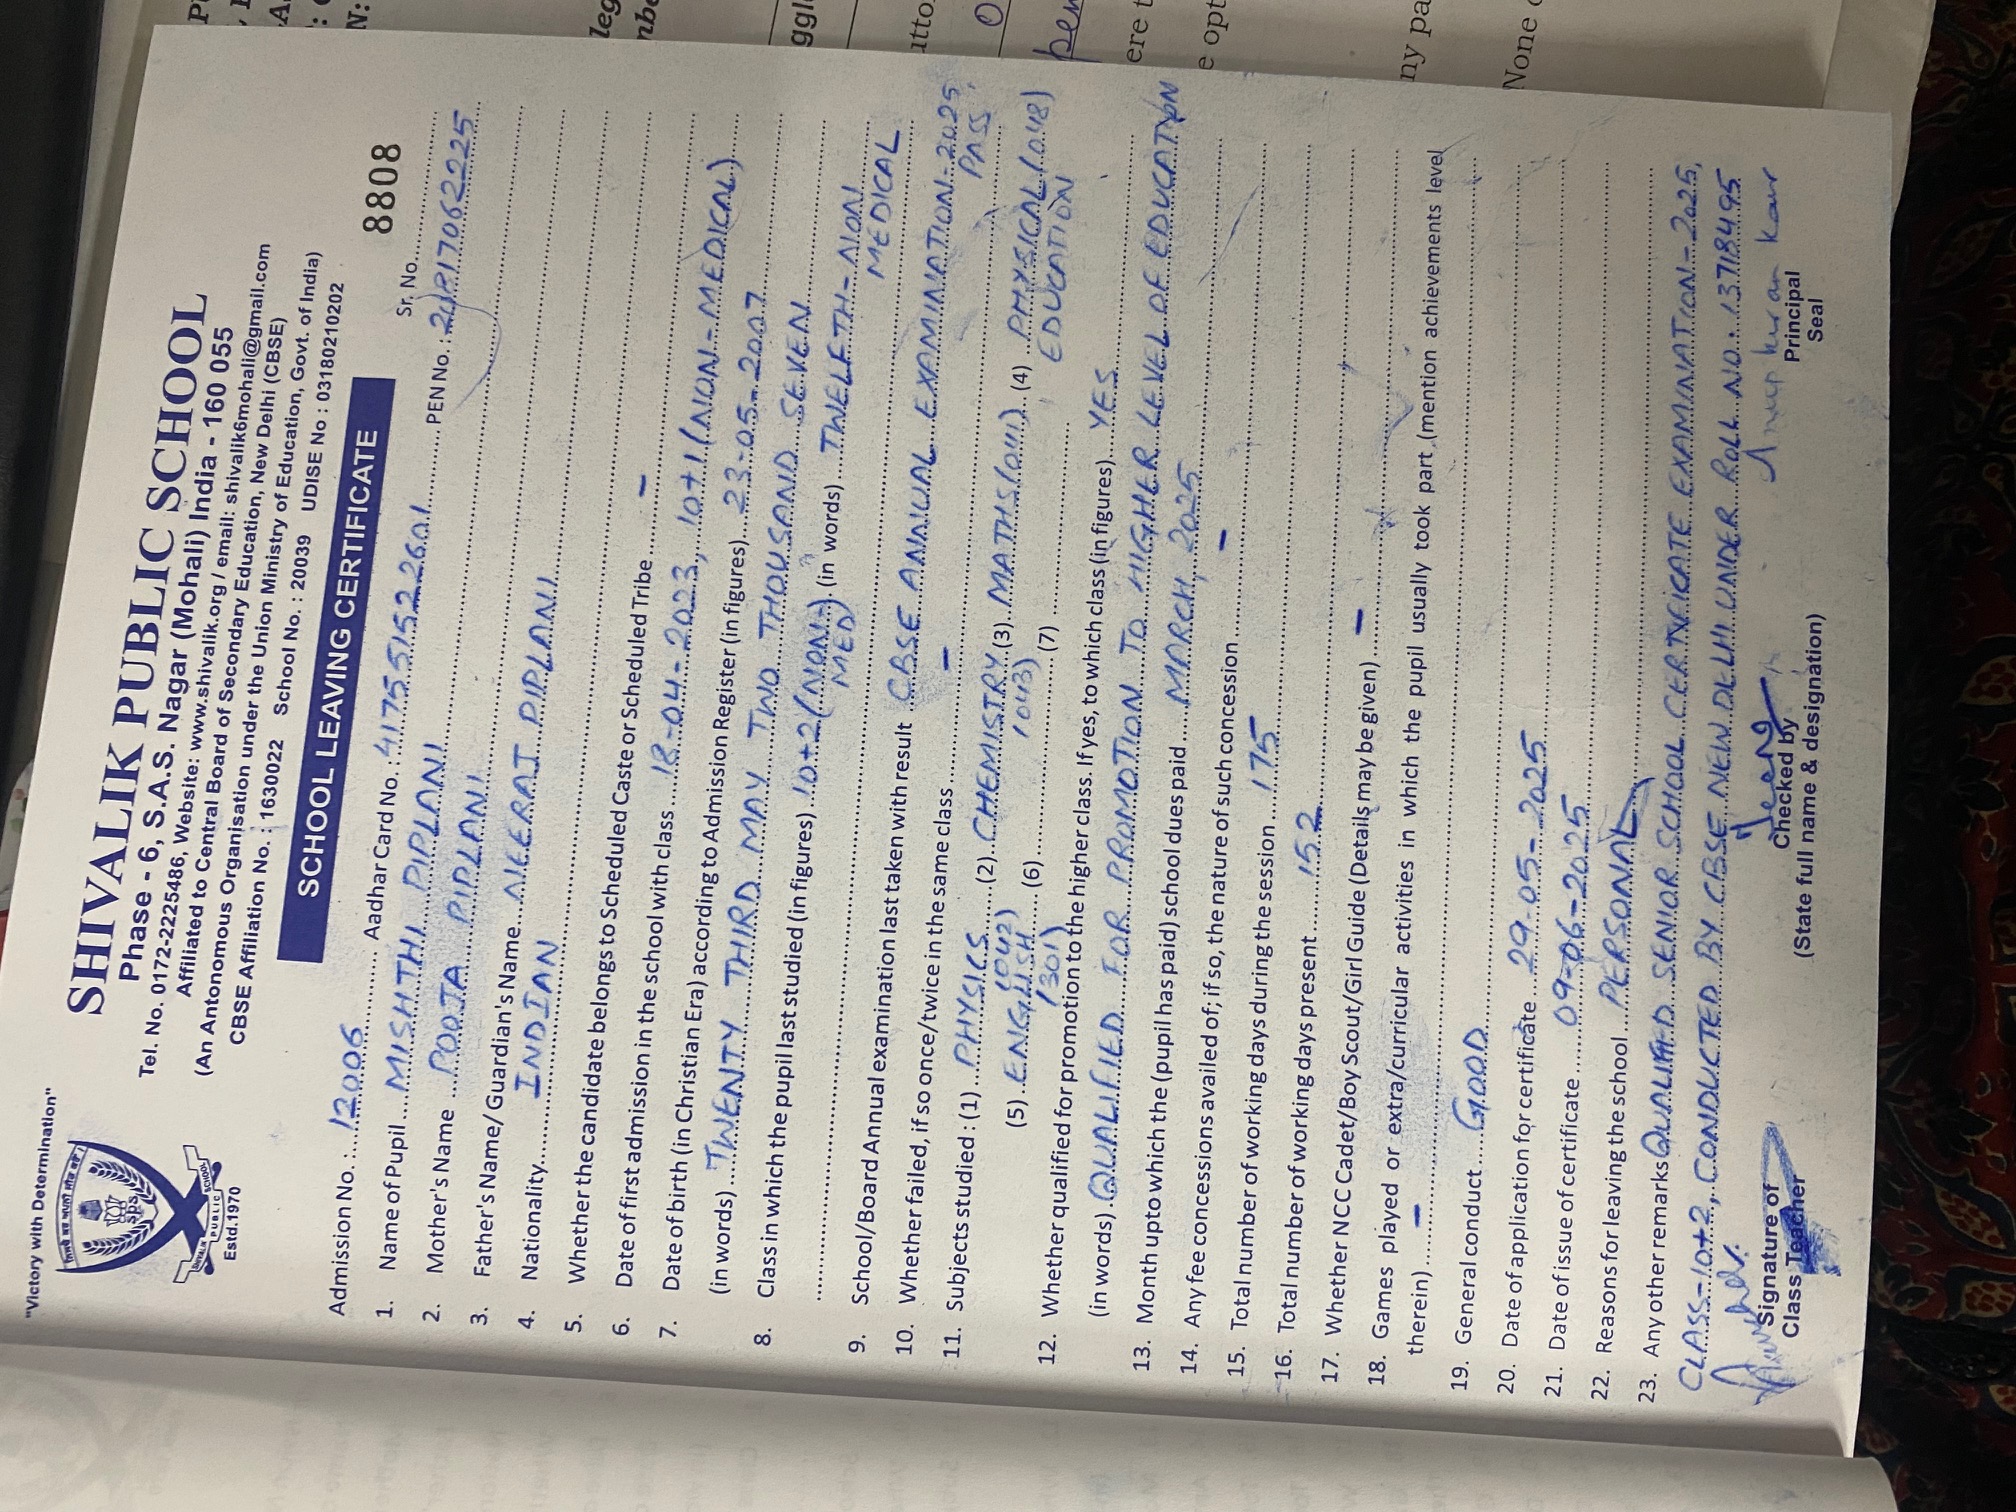 "Victory with Determination"
SHIVALIK PUBLIC SCHOOL
Phase - 6, S.A.S. Nagar (Mohali) India - 160 055
Tel. No. 0172-2225486, Website: www.shivalik.org / email: shivalik6mohali@gmail.com
Affiliated to Central Board of Secondary Education, New Delhi (CBSE)
(An Antonomous Organisation under the Union Ministry of Education, Govt. of India)
CBSE Affiliation No. : 1630022 School No. : 20039 UDISE No : 03180210202
sps
SHIVALIK PUBLIC SCHOOL
Estd.1970
SCHOOL LEAVING CERTIFICATE
Sr. No. 8808
Admission No. : 12006 Aadhar Card No. : 417551522601 PEN No. : 20817062225
1. Name of Pupil MISHTHI PIPLANI
2. Mother's Name POOJA PIPLANI
3. Father's Name/ Guardian's Name NEERAJ PIPLANI
4. Nationality INDIAN
5. Whether the candidate belongs to Scheduled Caste or Scheduled Tribe –
6. Date of first admission in the school with class 18-04-2023, 10+1 (NON-MEDICAL)
7. Date of birth (in Christian Era) according to Admission Register (in figures) 23-05-2007
(in words) TWENTY THIRD MAY TWO THOUSAND SEVEN
8. Class in which the pupil last studied (in figures) 10+2 (NON-MED) (in words) TWELFTH-NON MEDICAL
9. School/Board Annual examination last taken with result CBSE ANNUAL EXAMINATION-2025, PASS
10. Whether failed, if so once/twice in the same class –
11. Subjects studied : (1) PHYSICS (042) (2) CHEMISTRY (043) (3) MATHS (041) (4) PHYSICAL (048) EDUCATION
(5) ENGLISH (301) (6) (7)
12. Whether qualified for promotion to the higher class. If yes, to which class (in figures) YES
(in words) QUALIFIED FOR PROMOTION TO HIGHER LEVEL OF EDUCATION
13. Month upto which the (pupil has paid) school dues paid MARCH, 2025
14. Any fee concessions availed of; if so, the nature of such concession –
15. Total number of working days during the session 175
16. Total number of working days present 152
17. Whether NCC Cadet/Boy Scout/Girl Guide (Details may be given) –
18. Games played or extra/curricular activities in which the pupil usually took part (mention achievements level
therein) –
19. General conduct GOOD
20. Date of application for certificate 29-05-2025
21. Date of issue of certificate 09-06-2025
22. Reasons for leaving the school PERSONAL
23. Any other remarks QUALIFIED SENIOR SCHOOL CERTIFICATE EXAMINATION-2025,
CLASS-10+2, CONDUCTED BY CBSE NEW DELHI UNDER ROLL NO: 13718495
Signature of
Class Teacher
Checked by
(State full name & designation)
Principal
Seal
None
ny pa
e opt
ere t